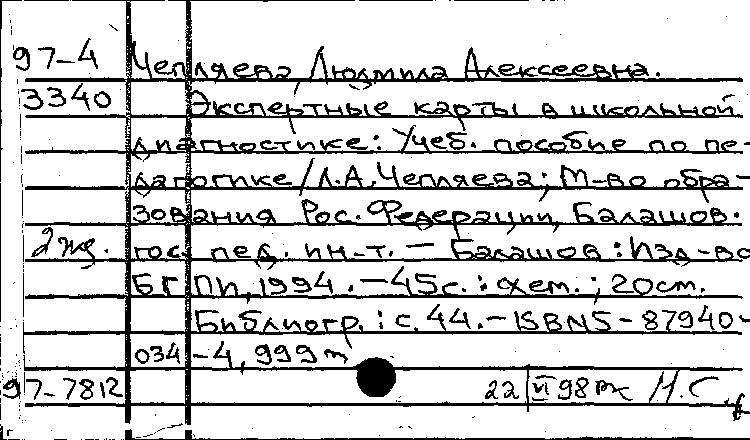 97-4 Чепляева, Людмила Алексеевна.
3340 Экспертные карты в школьной
диагностике: Учеб. пособие по пе-
дагогике / Л.А. Чепляева; М-во обра-
зования Рос. Федерации, Балашов.
2 жд. гос. пед. ин-т. — Балашов : Изд-во
БГПИ, 1994. — 45 с. : схем. ; 20 см.
Библиогр. : с. 44. — ISBN 5-87940-
034-4, 999
97-7812 22 VI 98 Н.С.